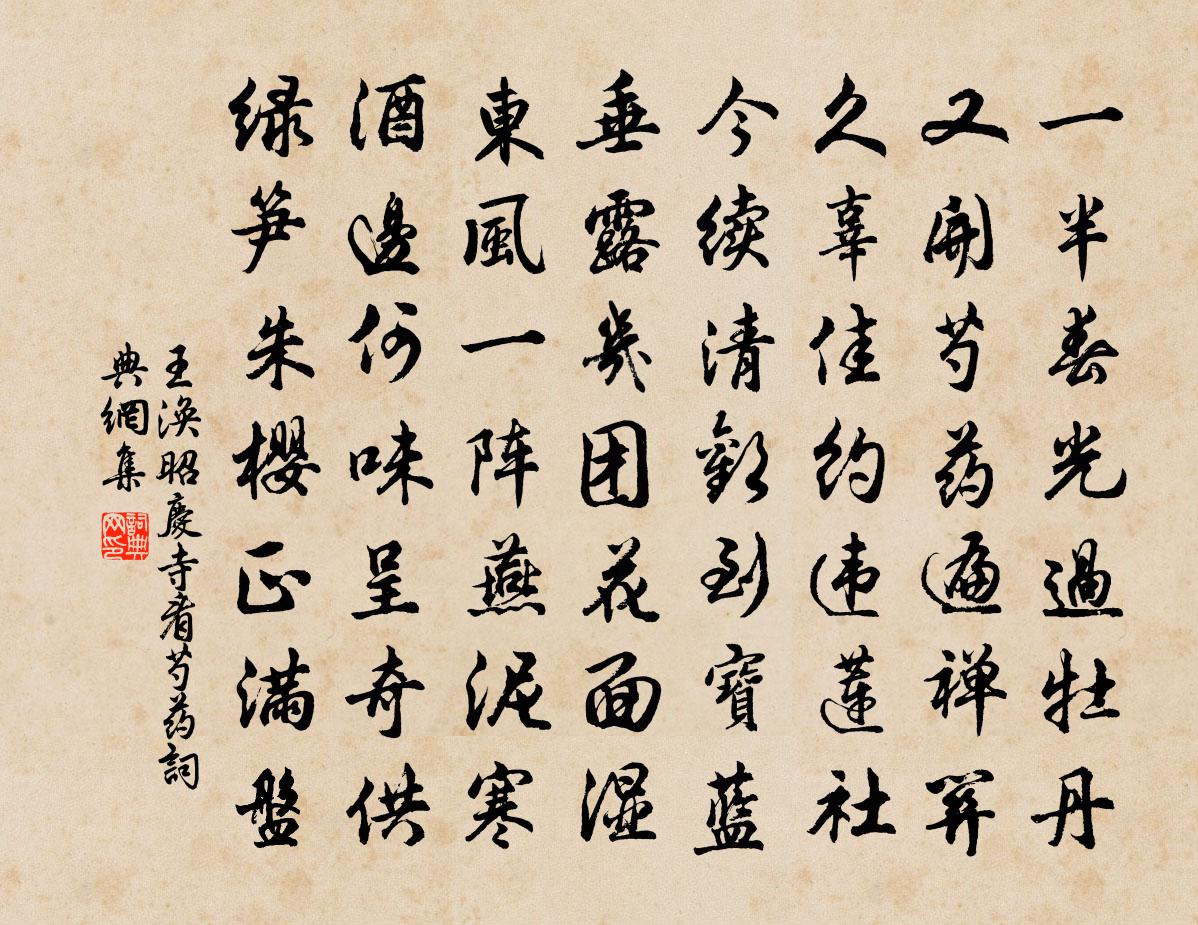 一半春光過牡丹
又開芍药遍禅關
久辜佳約违蓮社
今續清歡到寶藍
垂露幾团花面湿
東風一阵燕泥寒
酒邊何味呈奇供
緑笋朱櫻正满盤
王渙昭慶寺看芍药詞
典網集
詞典
网印